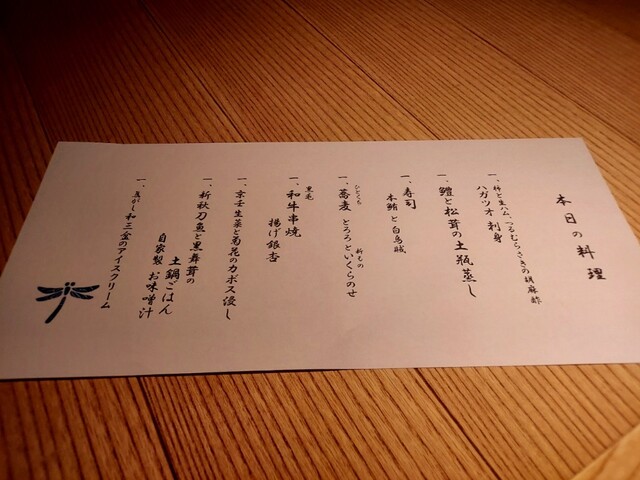 本日の料理
一、柿と生ハム、つるむらさきの胡麻酢
ハガツオ 刺身
一、鱧と松茸の土瓶蒸し
一、寿司
本鮪と白烏賊
ひとくち
一、蕎麦 とろろといくらのせ
新もの
黒毛
一、和牛串焼
揚げ銀杏
一、京壬生菜と菊花のカボス浸し
一、新秋刀魚と黒舞茸の
土鍋ごはん
自家製 お味噌汁
一、焦がし和三盆のアイスクリーム